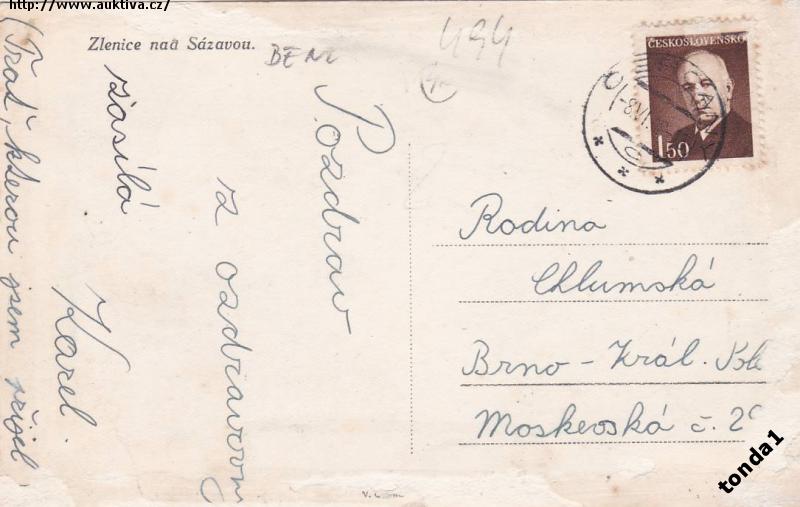 http://www.auktiva.cz/
Zlenice nad Sázavou.
BEN
494
ČESKOSLOVENSKO
1.50
Pozdrav
z ozdravovny
zasílá
Karel.
(Trať, kterou jsem přijel
Rodina
Chlumská
Brno - Král. Pole
Moskevská č.
tonda1